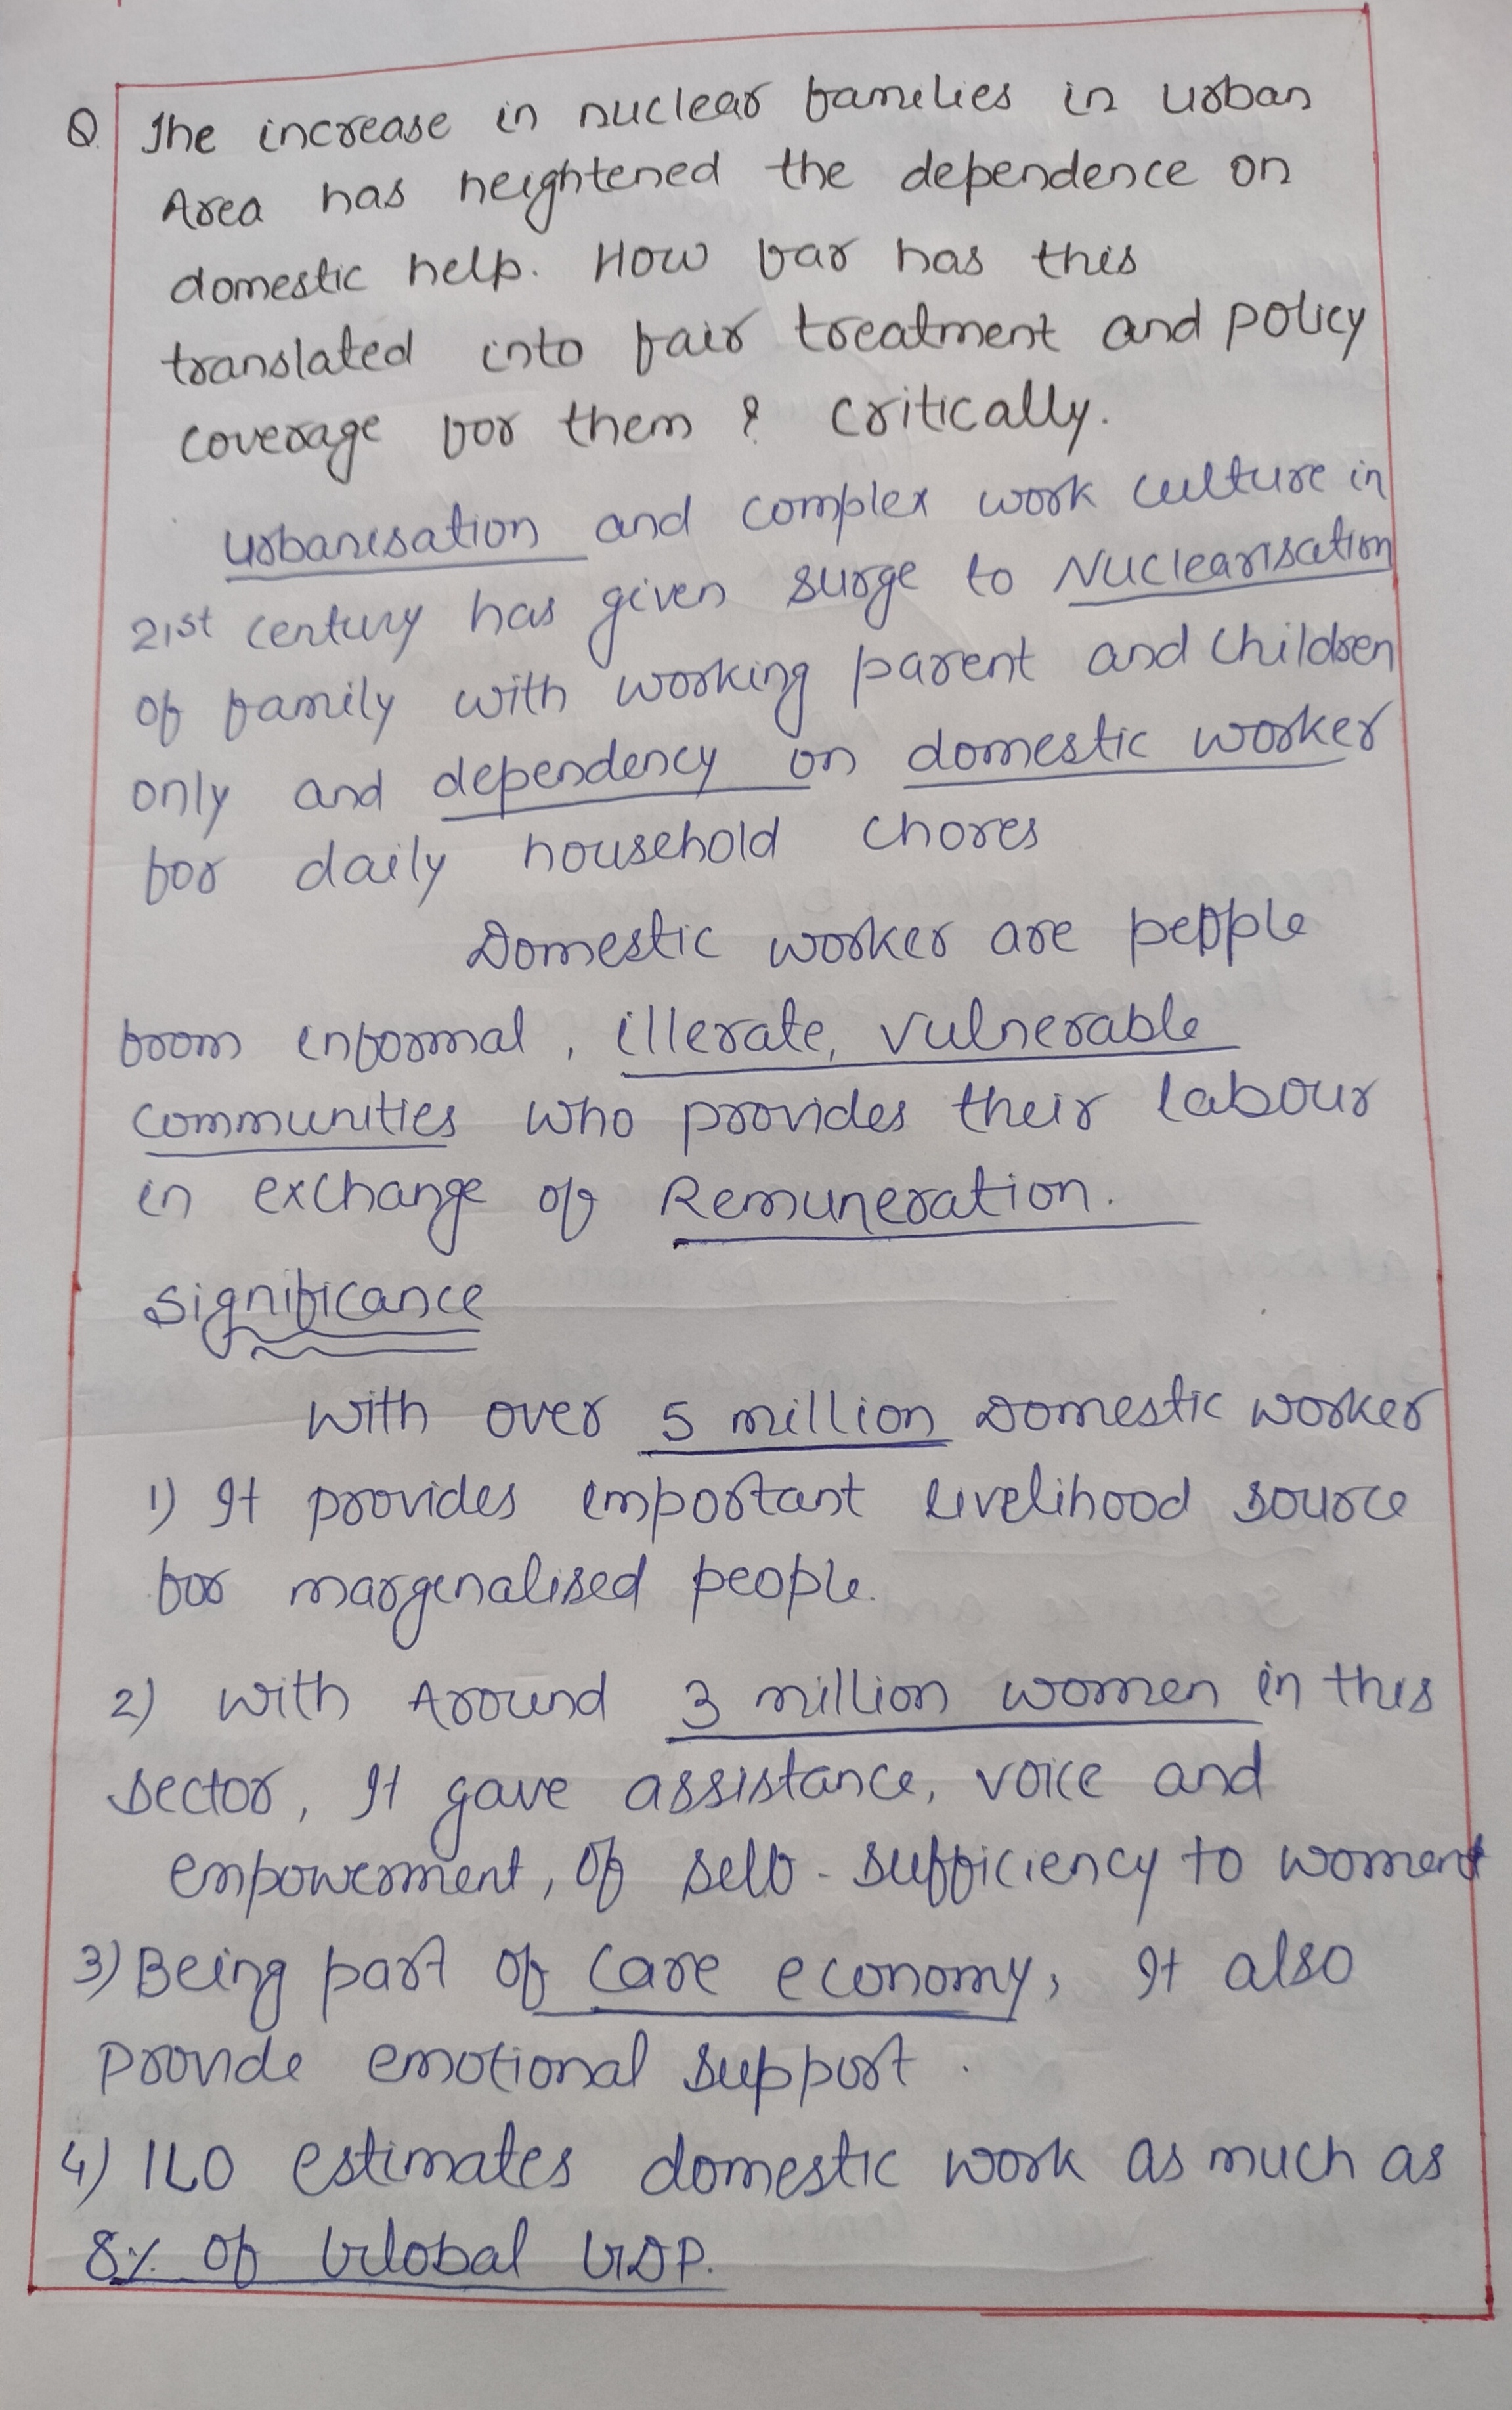 Q. The increase in nuclear families in urban
Area has heightened the dependence on
domestic help. How far has this
translated into fair treatment and policy
coverage for them ? critically.
Urbanisation and complex work culture in
21st century has given surge to Nuclearisation
of family with working parent and children
only and dependency on domestic worker
for daily household chores
Domestic worker are people
from informal, illerate, vulnerable
communities who provides their labour
in exchange of Remuneration.
Significance
With over 5 million Domestic worker
1) It provides important livelihood source
for marginalised people.
2) With Around 3 million women in this
sector, It gave assistance, voice and
empowerment, of self-sufficiency to women
3) Being part of Care economy, It also
provide emotional support.
4) ILO estimates domestic work as much as
8% of Global GDP.